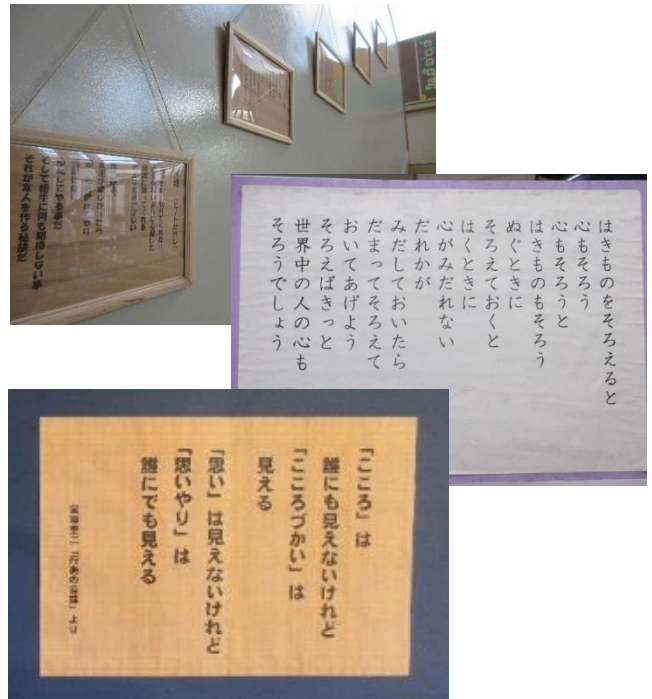 心配してやる事だ
そして相手に何も期待しない事
はきものをそろえると
心もそろう
心もそろうと
はきものもそろう
ぬぐときに
そろえておくと
はくときに
心がみだれない
だれかが
みだしておいたら
だまってそろえて
おいてあげよう
そろえばきっと
世界中の人の心も
そろうでしょう
「こころ」は
誰にも見えないけれど
「こころづかい」は
見える
「思い」は見えないけれど
「思いやり」は
誰にでも見える
宮澤章二「行為の意味」より